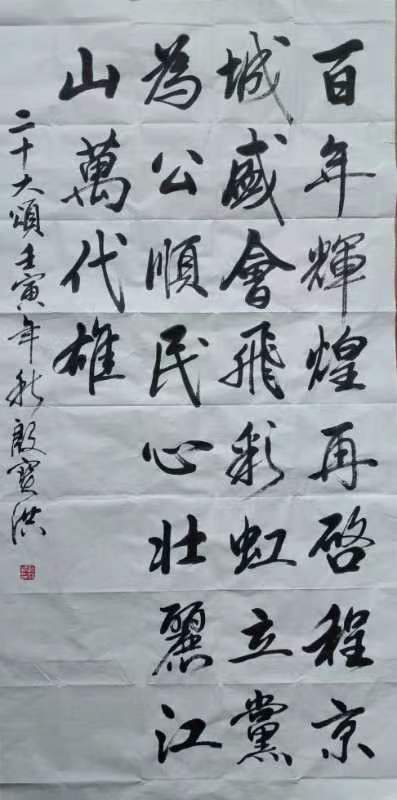 百年輝煌再啓程京
城盛會飛彩虹立黨
為公順民心壯麗江
山萬代雄
二十大頌壬寅年秋殷寶洪